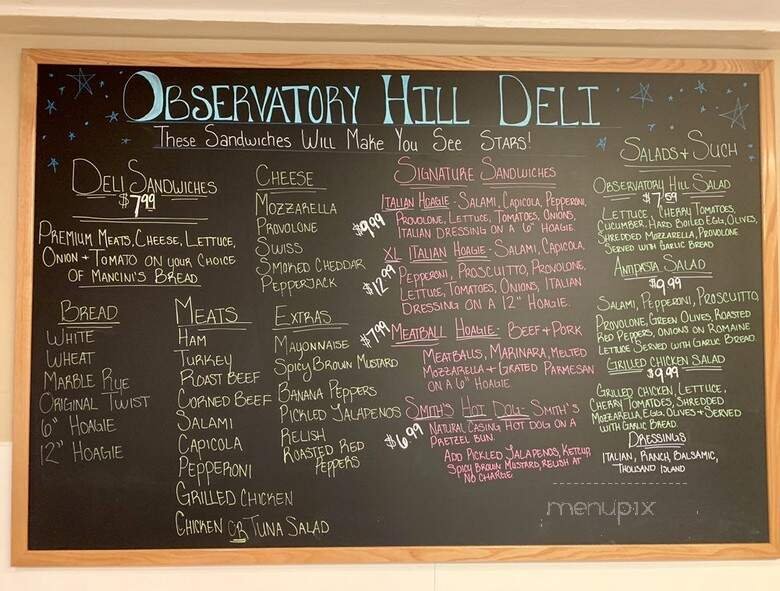 OBSERVATORY HILL DELI
THESE SANDWICHES WILL MAKE YOU SEE STARS!
DELI SANDWICHES
$7.99
PREMIUM MEATS, CHEESE, LETTUCE,
ONION + TOMATO ON YOUR CHOICE
OF MANCINI'S BREAD
BREAD
WHITE
WHEAT
MARBLE RYE
ORIGINAL TWIST
6" HOAGIE
12" HOAGIE
MEATS
HAM
TURKEY
ROAST BEEF
CORNED BEEF
SALAMI
CAPICOLA
PEPPERONI
GRILLED CHICKEN
CHICKEN OR TUNA SALAD
CHEESE
MOZZARELLA
PROVOLONE
SWISS
SMOKED CHEDDAR
PEPPERJACK
EXTRAS
MAYONNAISE
SPICY BROWN MUSTARD
BANANA PEPPERS
PICKLED JALAPENOS
RELISH
ROASTED RED
PEPPERS
SIGNATURE SANDWICHES
ITALIAN HOAGIE - SALAMI, CAPICOLA, PEPPERONI,
$9.99 PROVOLONE, LETTUCE, TOMATOES, ONIONS,
ITALIAN DRESSING ON A 6" HOAGIE
XL ITALIAN HOAGIE - SALAMI, CAPICOLA,
$12.99 PEPPERONI, PROSCUITTO, PROVOLONE,
LETTUCE, TOMATOES, ONIONS, ITALIAN
DRESSING ON A 12" HOAGIE.
$7.99 MEATBALL HOAGIE - BEEF + PORK
MEATBALLS, MARINARA, MELTED
MOZZARELLA + GRATED PARMESAN
ON A 6" HOAGIE
SMITH'S HOT DOG - SMITH'S
$6.99 NATURAL CASING HOT DOG ON A
PRETZEL BUN
ADD PICKLED JALAPENOS, KETCHUP,
SPICY BROWN MUSTARD, RELISH AT
NO CHARGE
SALADS + SUCH
OBSERVATORY HILL SALAD
$7.59
LETTUCE, CHERRY TOMATOES,
CUCUMBER, HARD BOILED EGG, OLIVES,
SHREDDED MOZZARELLA, PROVOLONE
SERVED WITH GARLIC BREAD
ANTIPASTA SALAD
$10.99
SALAMI, PEPPERONI, PROSCUITTO,
PROVOLONE, GREEN OLIVES, ROASTED
RED PEPPERS, ONIONS ON ROMAINE
LETTUCE SERVED WITH GARLIC BREAD.
GRILLED CHICKEN SALAD
$9.99
GRILLED CHICKEN, LETTUCE,
CHERRY TOMATOES, SHREDDED
MOZZARELLA, EGG, OLIVES + SERVED
WITH GARLIC BREAD
DRESSINGS
ITALIAN, RANCH, BALSAMIC,
THOUSAND ISLAND
menupix